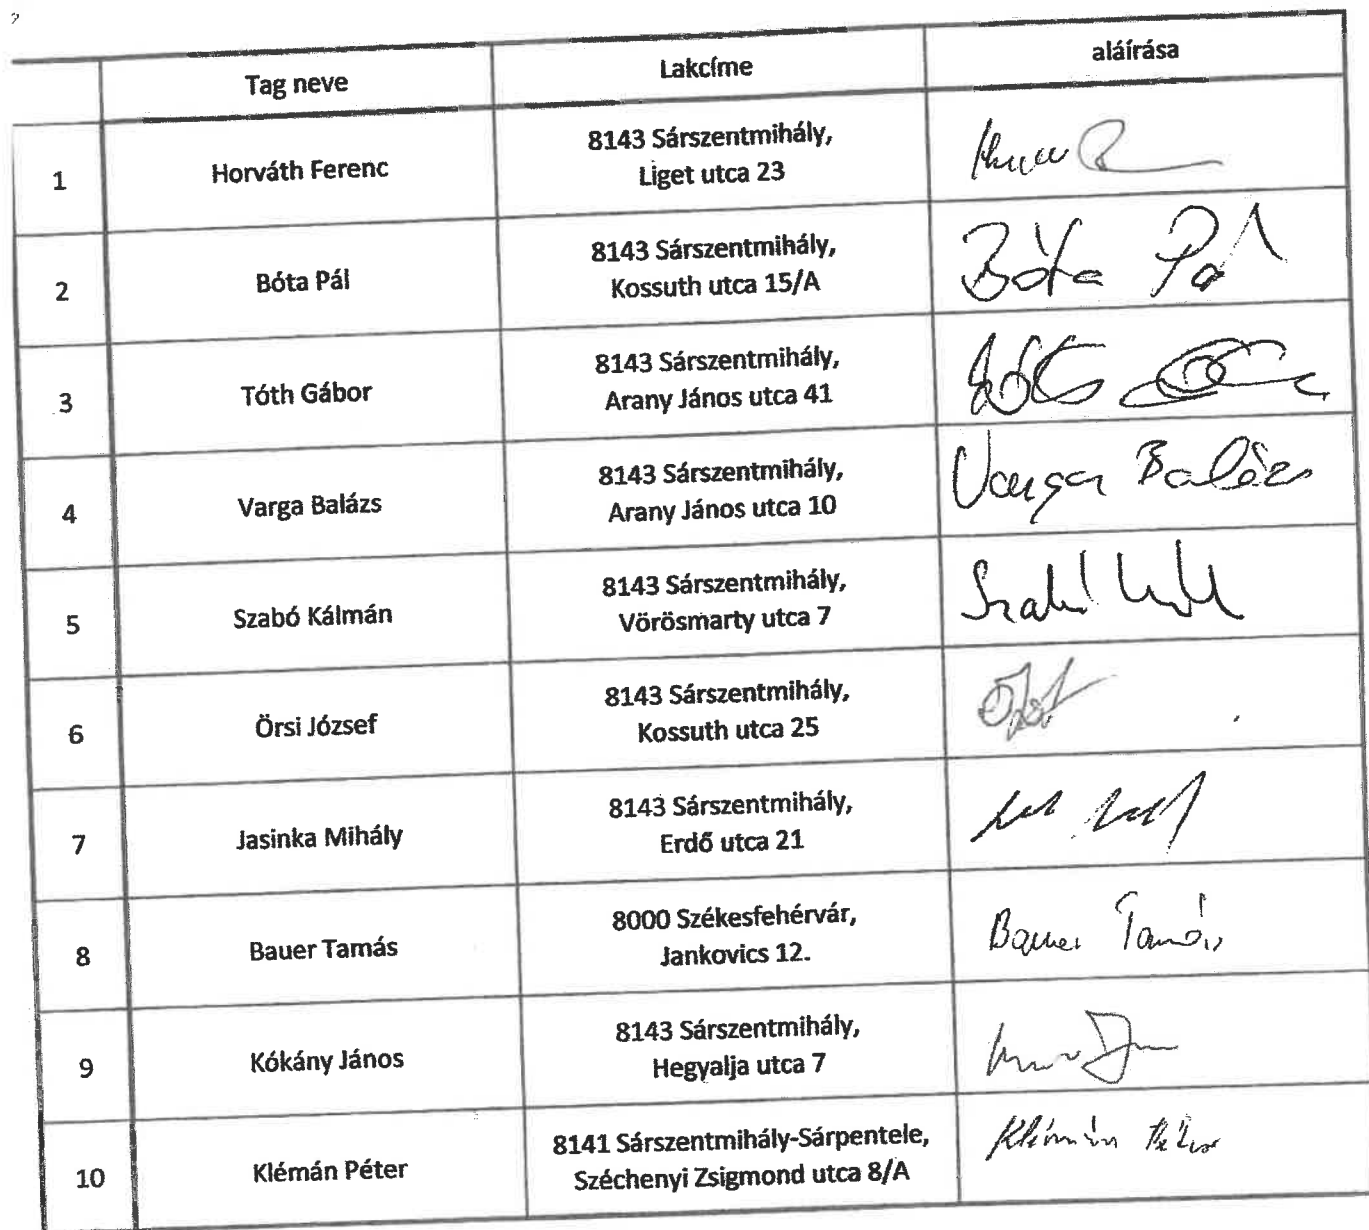 Tag neve
Lakcíme
aláírása
1
Horváth Ferenc
8143 Sárszentmihály,
Liget utca 23
2
Bóta Pál
8143 Sárszentmihály,
Kossuth utca 15/A
Bóta Pál
3
Tóth Gábor
8143 Sárszentmihály,
Arany János utca 41
4
Varga Balázs
8143 Sárszentmihály,
Arany János utca 10
Varga Balázs
5
Szabó Kálmán
8143 Sárszentmihály,
Vörösmarty utca 7
Szabó
6
Örsi József
8143 Sárszentmihály,
Kossuth utca 25
7
Jasinka Mihály
8143 Sárszentmihály,
Erdő utca 21
8
Bauer Tamás
8000 Székesfehérvár,
Jankovics 12.
Bauer Tamás
9
Kókány János
8143 Sárszentmihály,
Hegyalja utca 7
10
Klémán Péter
8141 Sárszentmihály-Sárpentele,
Széchenyi Zsigmond utca 8/A
Klémán Péter